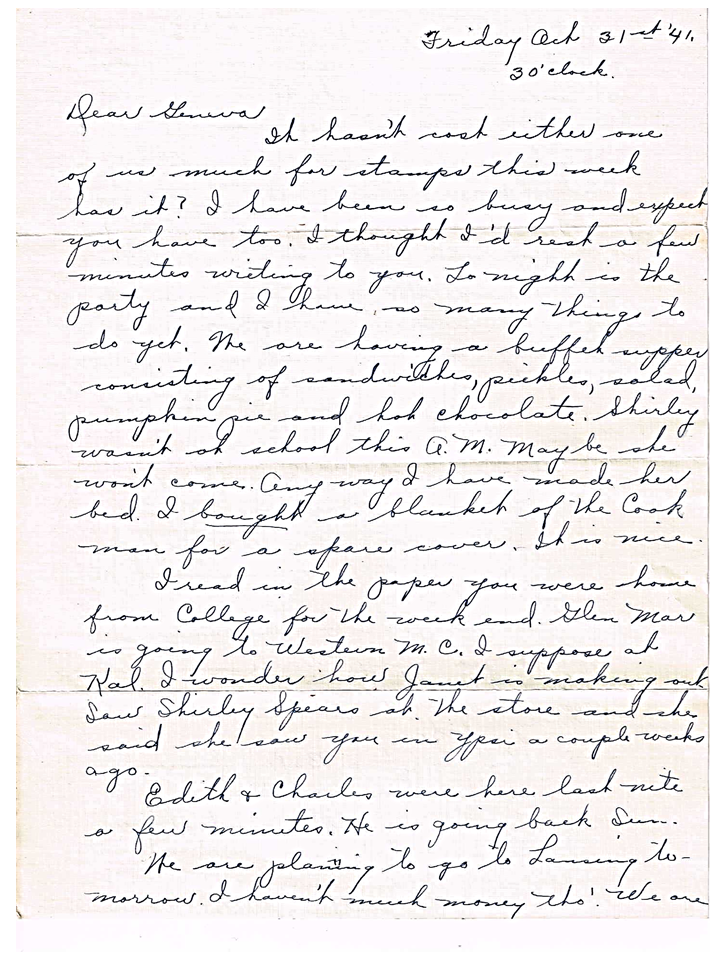 Friday Oct 31st '41.
3 o'clock.
Dear Geneva
It hasn't cost either one
of us much for stamps this week
has it? I have been so busy and expect
you have too. I thought I'd rest a few
minutes writing to you. To night is the
party and I have so many things to
do yet. We are having a buffet supper
consisting of sandwiches, pickles, salad,
pumpkin pie and hot chocolate. Shirley
wasn't at school this A.M. May be she
won't come. Any way I have made her
bed. I bought a blanket of the Cook
man for a spare cover. It is nice.
I read in the paper you were home
from College for the week end. Glen Mar
is going to Western M.C. I suppose at
Kal. I wonder how Janet is making out
Saw Shirley Spears at the store and she
said she saw you in Ypsi a couple weeks
ago.
Edith & Charles were here last nite
a few minutes. He is going back Sun.
We are planning to go to Lansing to-
morrow. I haven't much money tho'. We are